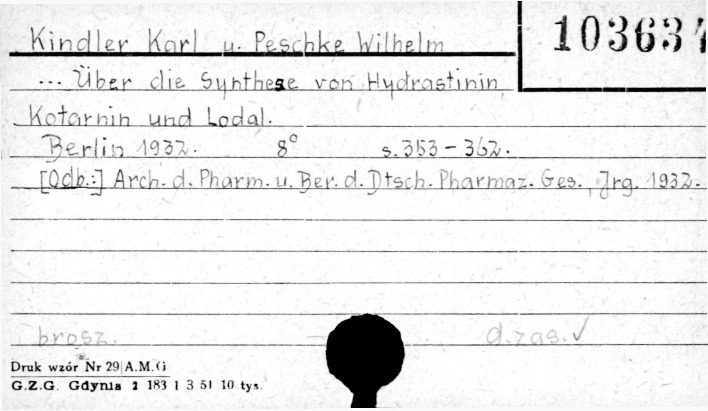 103637
Kindler Karl u. Peschke Wilhelm
... Über die Synthese von Hydrastinin,
Kotarnin und Lodal.
Berlin 1932. 8° s. 353-362.
[Odb.:] Arch. d. Pharm. u. Ber. d. Dtsch. Pharmaz. Ges., Jrg. 1932.
brosz. d.zas. ✓
Druk wzór Nr 29 A.M.G
G.Z.G. Gdynia 2 183 1 3 51 10 tys.